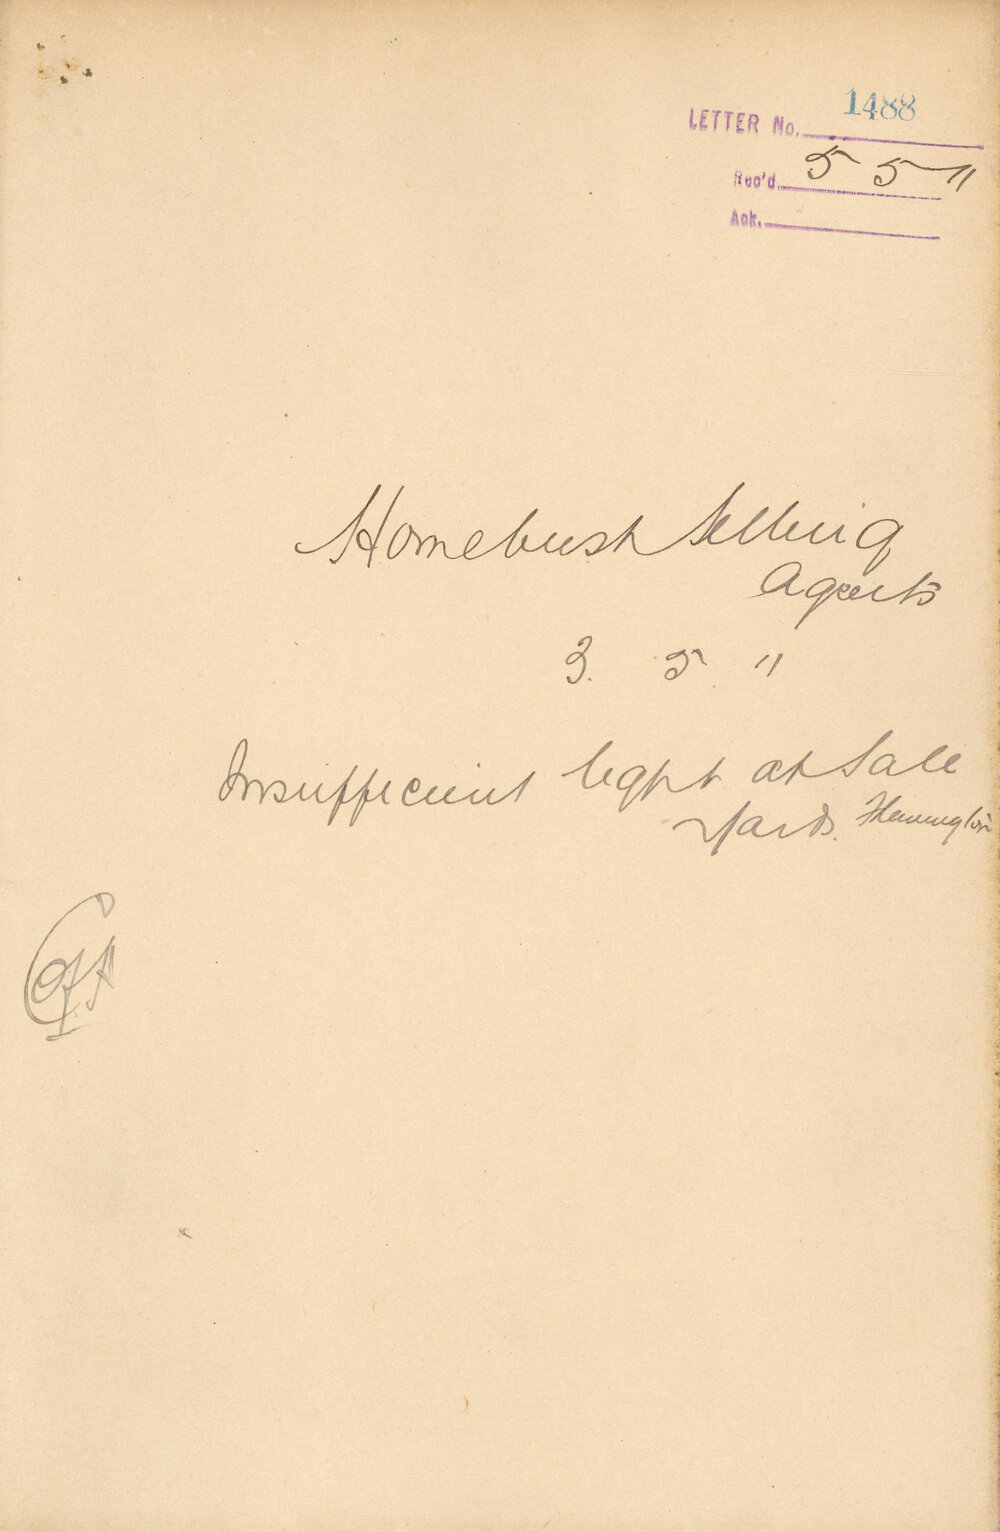 1488
LETTER No.
Rec'd 5 5 11
Ack.
Homebush Selling
Agents
3. 5. 11
Insufficient light at Sale
Yards. Flemington